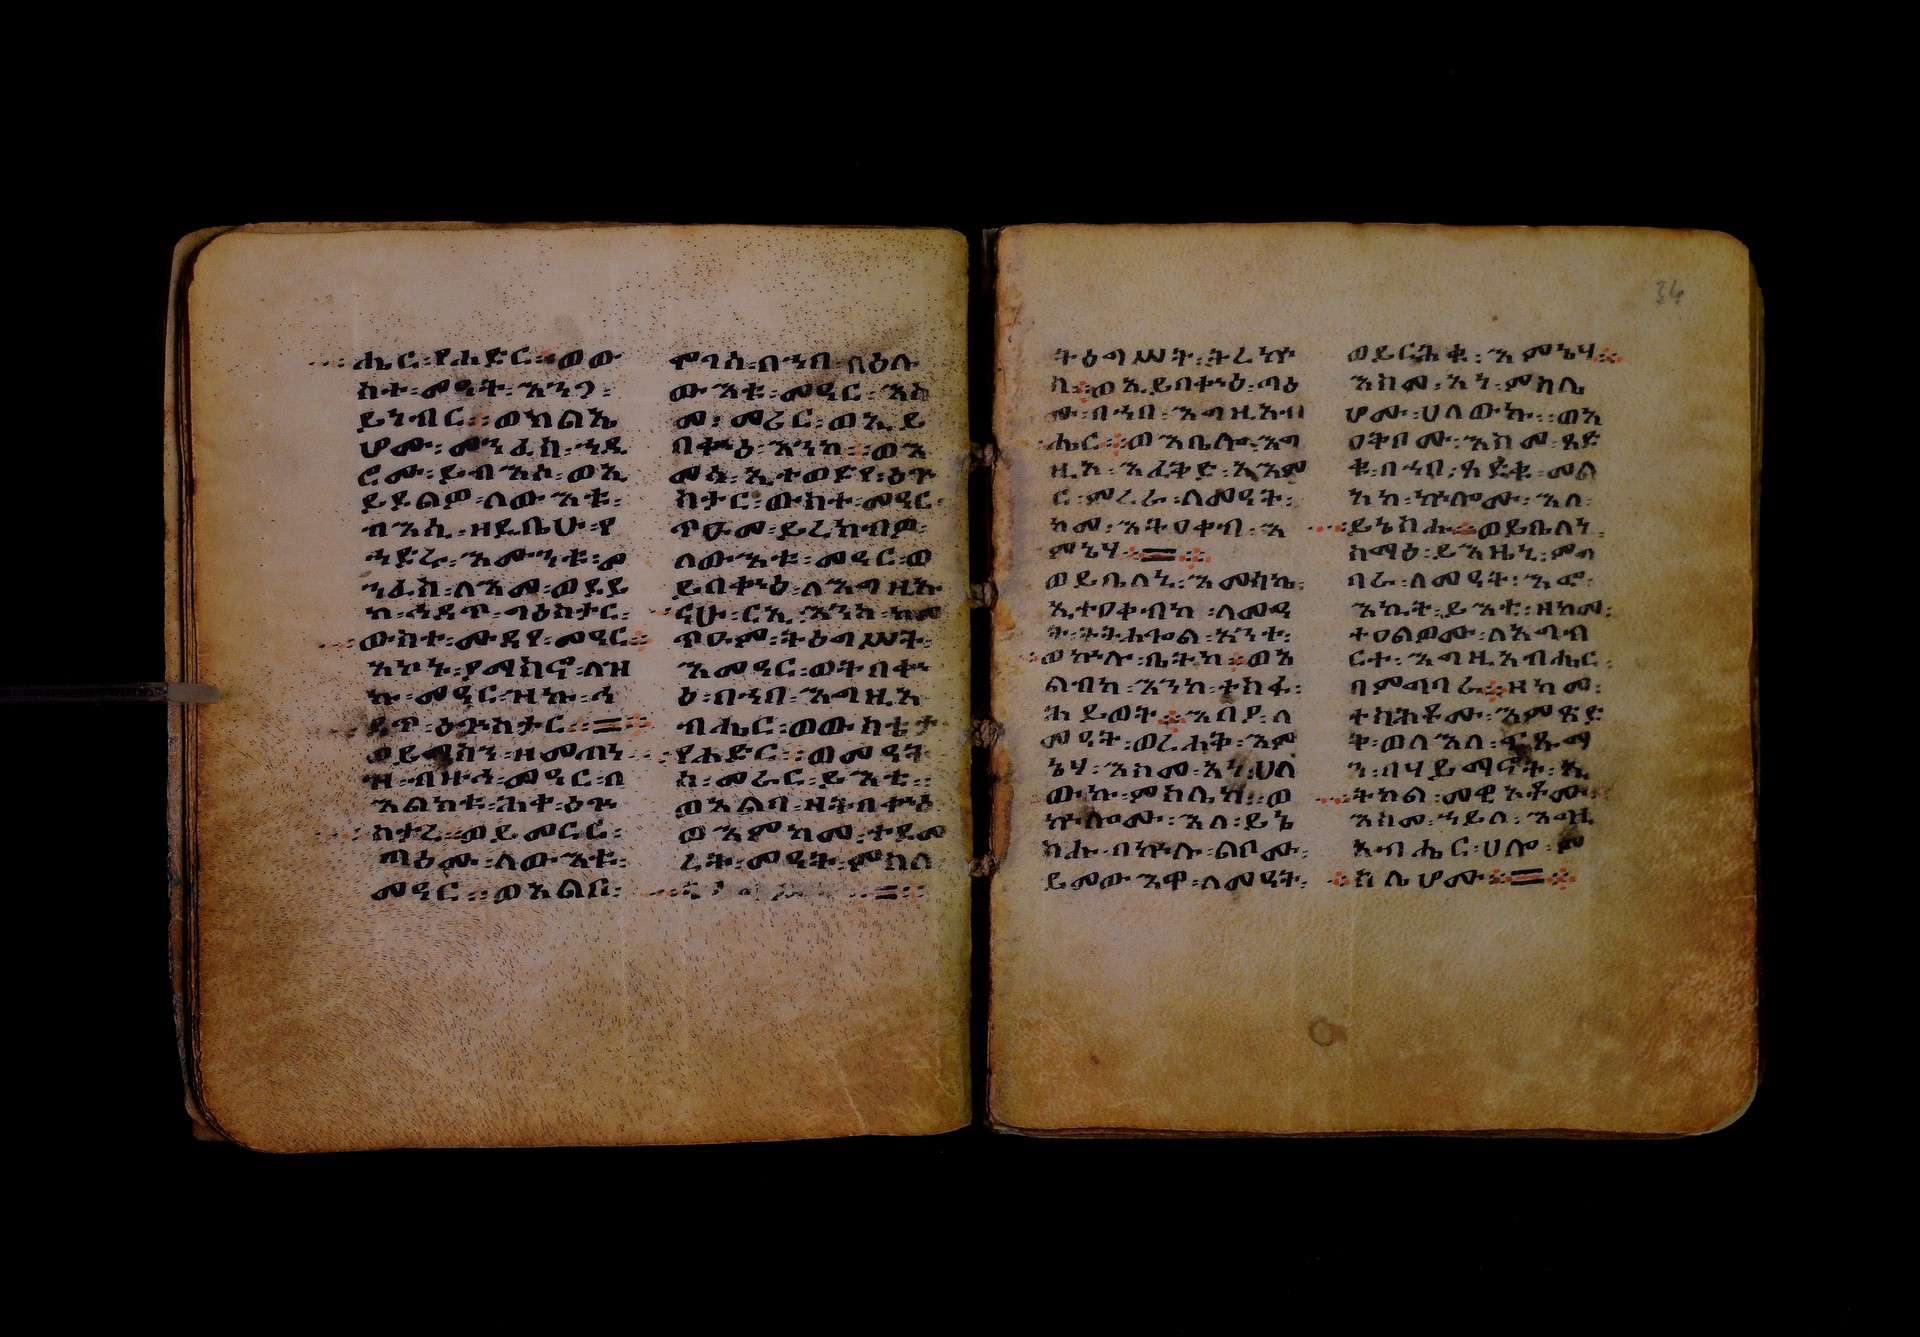 ሔር ፡ የሐድር ። ወው
ስተ ፡ መዓት ፡ እንጋ ፡
ይነብር ። ወክልኤ
ሆሙ ፡ መንፈስ ፡ ኀደ
ሮሙ ፡ ይብእስ ፡ ወኢ
ይደልዎ ፡ ለውእቱ ፡
ብእሲ ፡ ዘይቤሁ ፡ የ
ኀድራ ፡ እሙንቱ ፡ ወ
ንፈስ ፡ ለእመ ፡ ወደይ
ውስተ ፡ ሙዳየ ፡ መዓር ።
እኮኑ ፡ ያማስኖ ፡ ለዝ
ኩ ፡ መዓር ፡ ዝኩ ፡
ወይጣስን ፡ ዘመጠነ
ዝ ፡ ብዙኅ ፡ መዓር ፡ በ
እልክቱ ፡ ሕቀ ፡ ዕፍ
ስተረ ። ወይመርር ፡
ጣዕሙ ፡ ለውእቱ ፡
መዓር ። ወእልቦ ፡
ሞገስ ፡ በኀበ ፡ በዕለ
ውእቱ ፡ መዓር ፡ እስ
መ ፡ መሪር ፡ ወኢይ
በቍዕ ፡ እንከ ። ወእ
መሰ ፡ ኢተወደየ ፡ ዕፍ
ስተር ፡ ውስተ ፡ መዓር ፡
ጥዑመ ፡ ይረክብዎ ፡
ለውእቱ ፡ መዓር ፡ ወ
ይበቍዕ ፡ ለእግዚኡ
ጥዑም ፡ ትዕግሥት ፡
እመዓር ፡ ወትበቍ
ዕ ፡ በኀበ ፡ እግዚእ
ብሔር ፡ ወውስቴታ
የሐድር ። ወመዓት
ሰ ፡ መሪር ፡ ይእቲ ።
ወእልባ ፡ ዘትበቍዕ
ወእምከመ ፡ ተደመ
ረት ፡ መዓት ፡ ምስለ
ትዕግሥት ፡ ትረኵ
ስ ። ወኢይበቍዕ ፡ ጣዕ
ሙ ፡ በኀበ ፡ እግዚአብ
ሔር ። ወእቤሎ ፡ እግ
ዚእ ፡ እፈቅድ ፡ እእም
ር ፡ ምረራ ፡ ለመዓት ፡
ከመ ፡ እትዐቀብ ፡ እ
ምኔሃ ። =
ወይቤለኒ ፡ እመሰኬ ፡
ኢተዐቀብከ ፡ ለመዓ
ት ፡ ትትሐጐል ፡ እንተ ፡
ወኵሉ ፡ ቤትከ ። ወእ
ልብከ ፡ እንከ ፡ ተስፋ ፡
ሕይወት ። ዕበያ ፡ ለ
መዓት ፡ ወረሐቅ ፡ እም
ኔሃ ፡ እስመ ፡ እነ ፡ ሀለ
ውኩ ፡ ምስሌከ ። ወ
ኵሎሙ ፡ እለ ፡ ይኔ
ስሑ ፡ በኵሉ ፡ ልቦሙ ፡
ይመውእዋ ፡ ለመዓት ፡
ወይርሕቁ ፡ እምኔሃ ።
እስመ ፡ እነ ፡ ምስሌ
ሆሙ ፡ ሀለውኩ ። ወእ
ዐቅቦሙ ፡ እስመ ፡ ጸድ
ቁ ፡ በኀበ ፡ ጻድቁ ፡ መል
እክ ፡ ኵሎሙ ፡ እለ ፡
ይኔስሑ ። ወይቤለነ ፡
ስማዕ ፡ ይእዜኒ ፡ ምግ
ባራ ፡ ለመዓት ፡ እፎ ፡
እኪት ፡ ይእቲ ፡ ዘከመ ፡
ተዐልዎሙ ፡ ለአግብ
ርተ ፡ እግዚአብሔር ፡
በምግባራ ። ዘከመ ፡
ተስሕቶሙ ፡ እምጽድ
ቅ ፡ ወለእለ ፡ ፍጹማ
ን ፡ በሃይማኖት ፡ ኢ
ትክል ፡ መዊአቶሙ ።
እስመ ፡ ኀይለ ፡ እግዚ
አብሔር ፡ ሀሎ ፡ ም
ስሌሆሙ ። =